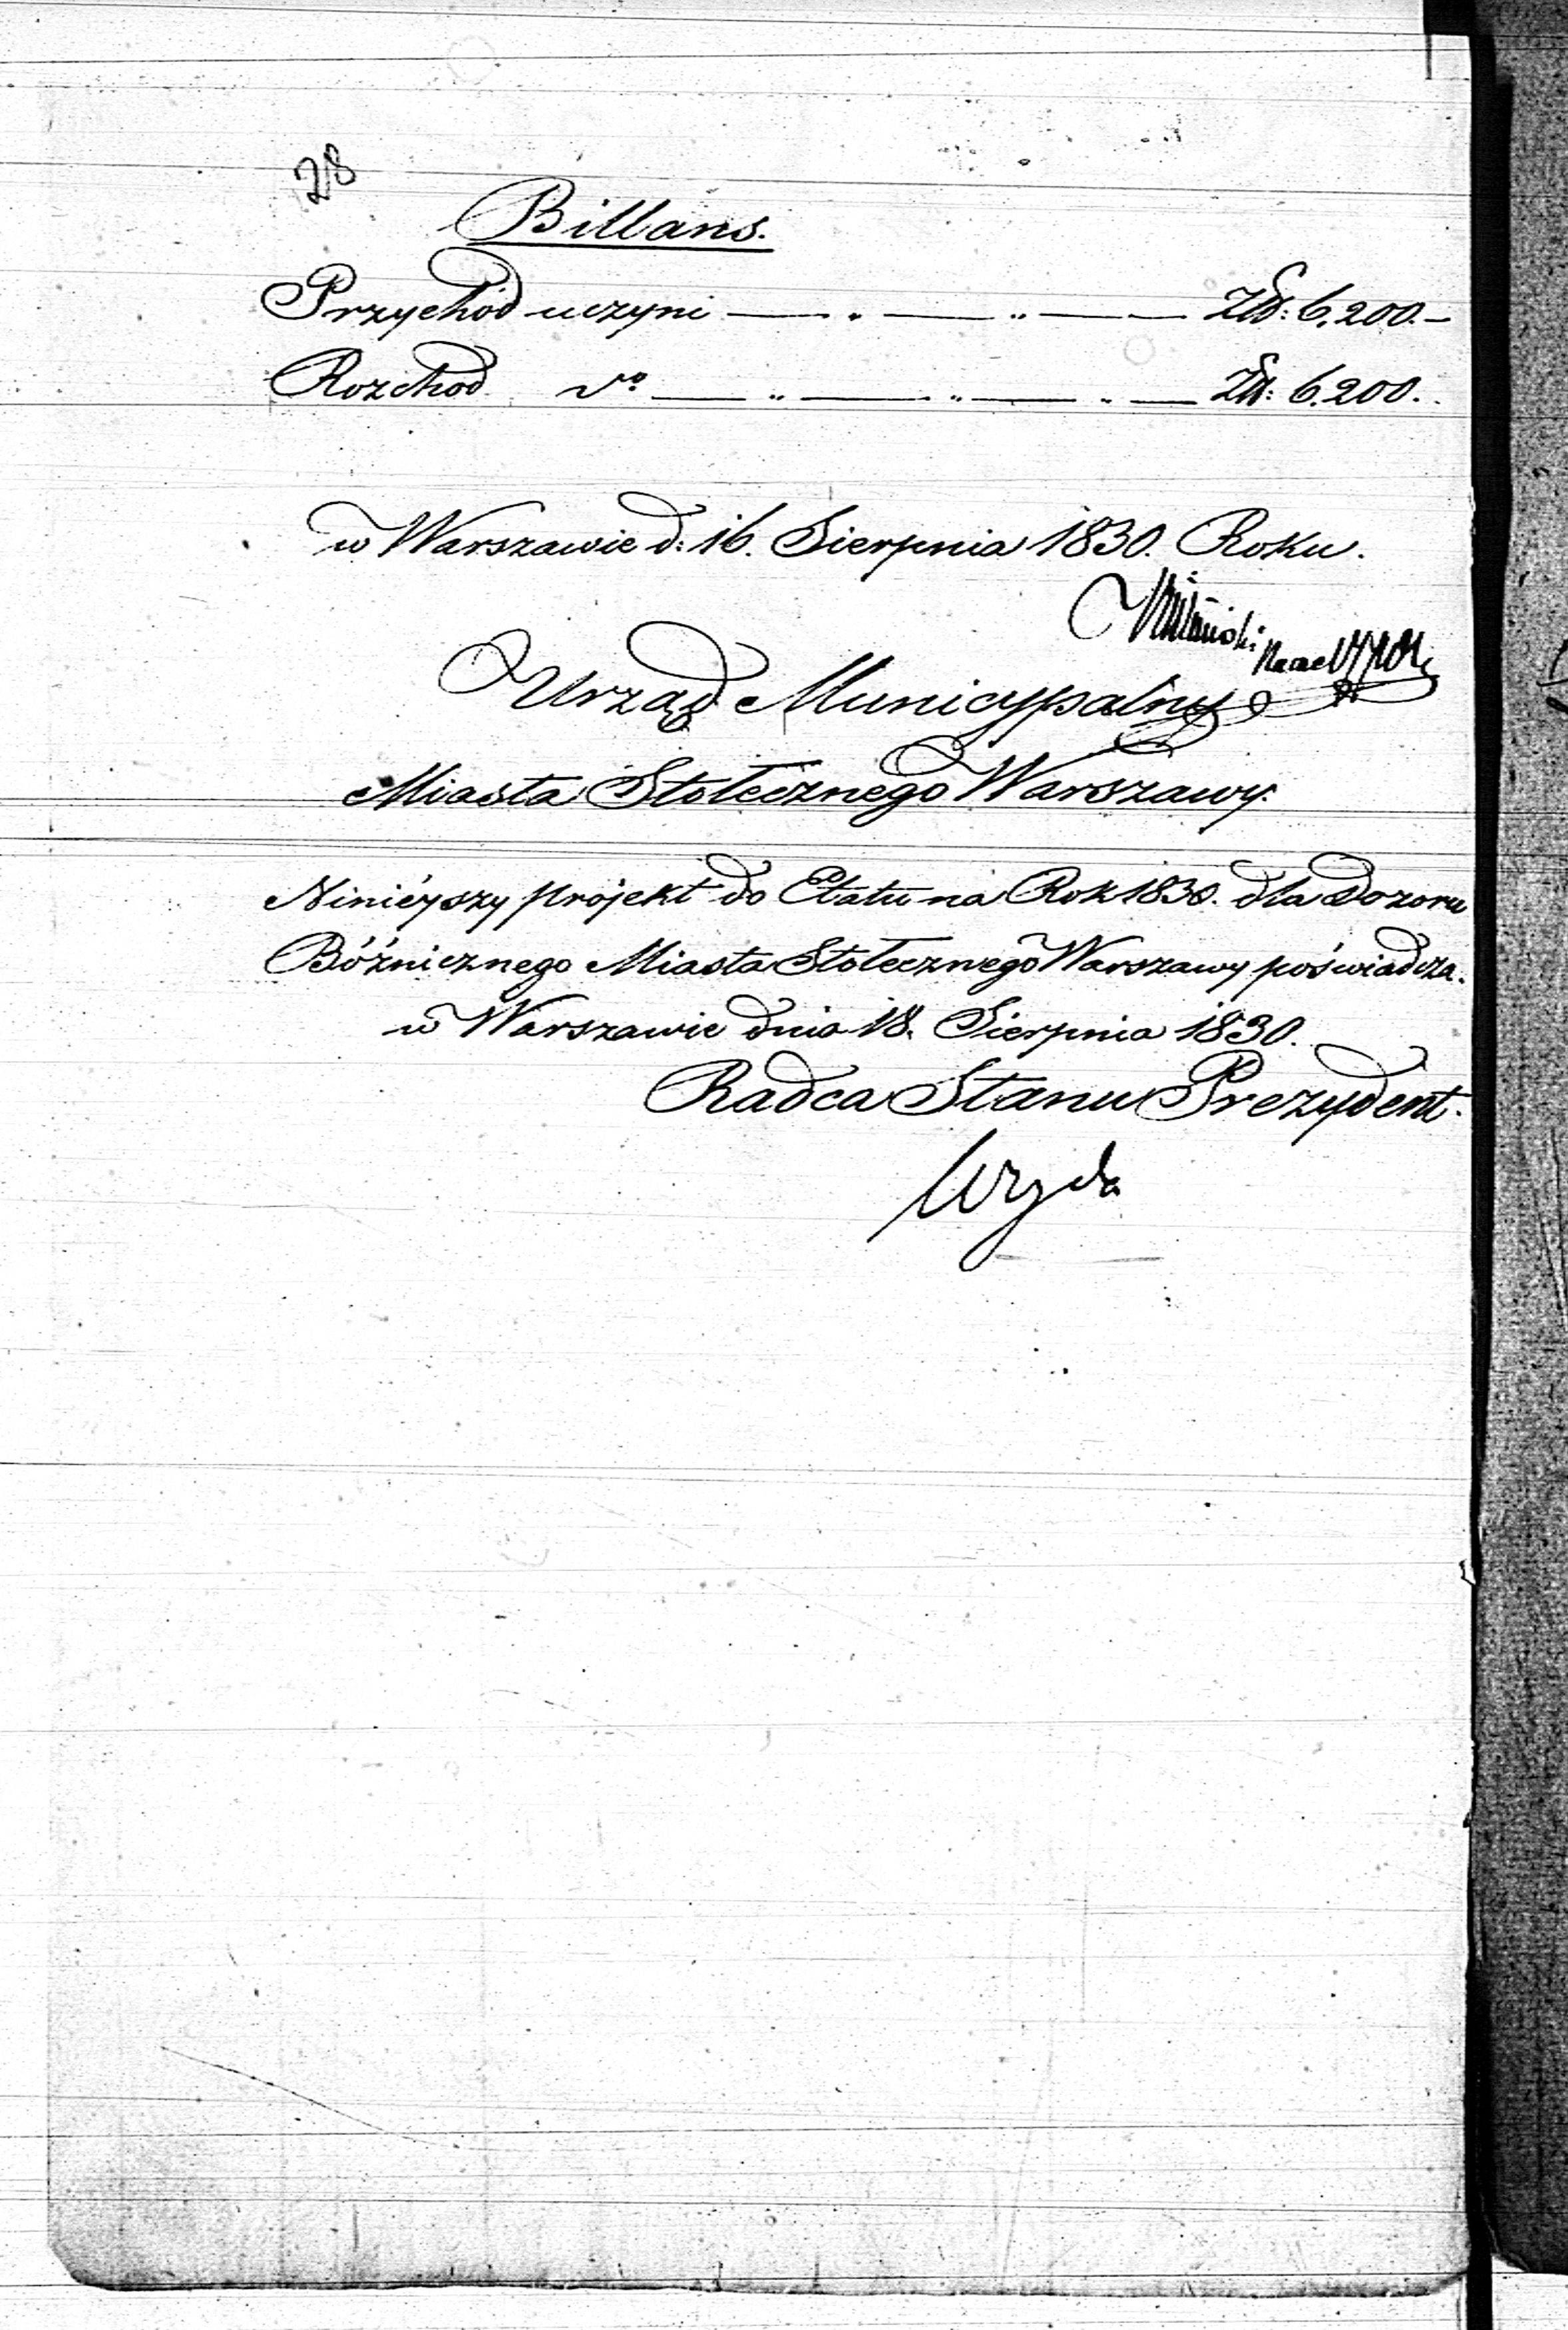 28
Billans.
Przychód uczyni — „ — „ — — Złp: 6,200.—
Rozchod do — „ — „ — „ — Zł: 6.200.
w Warszawie d: 16. Sierpnia 1830. Roku.
Urząd Municypalny
Miasta Stołecznego Warszawy.
Ninieyszy projekt do Etatu na Rok 1830. dla Dozoru
Bóźnicznego Miasta Stołecznego Warszawy poświadcza.
w Warszawie dnia 18. Sierpnia 1830.
Radca Stanu Prezydent.